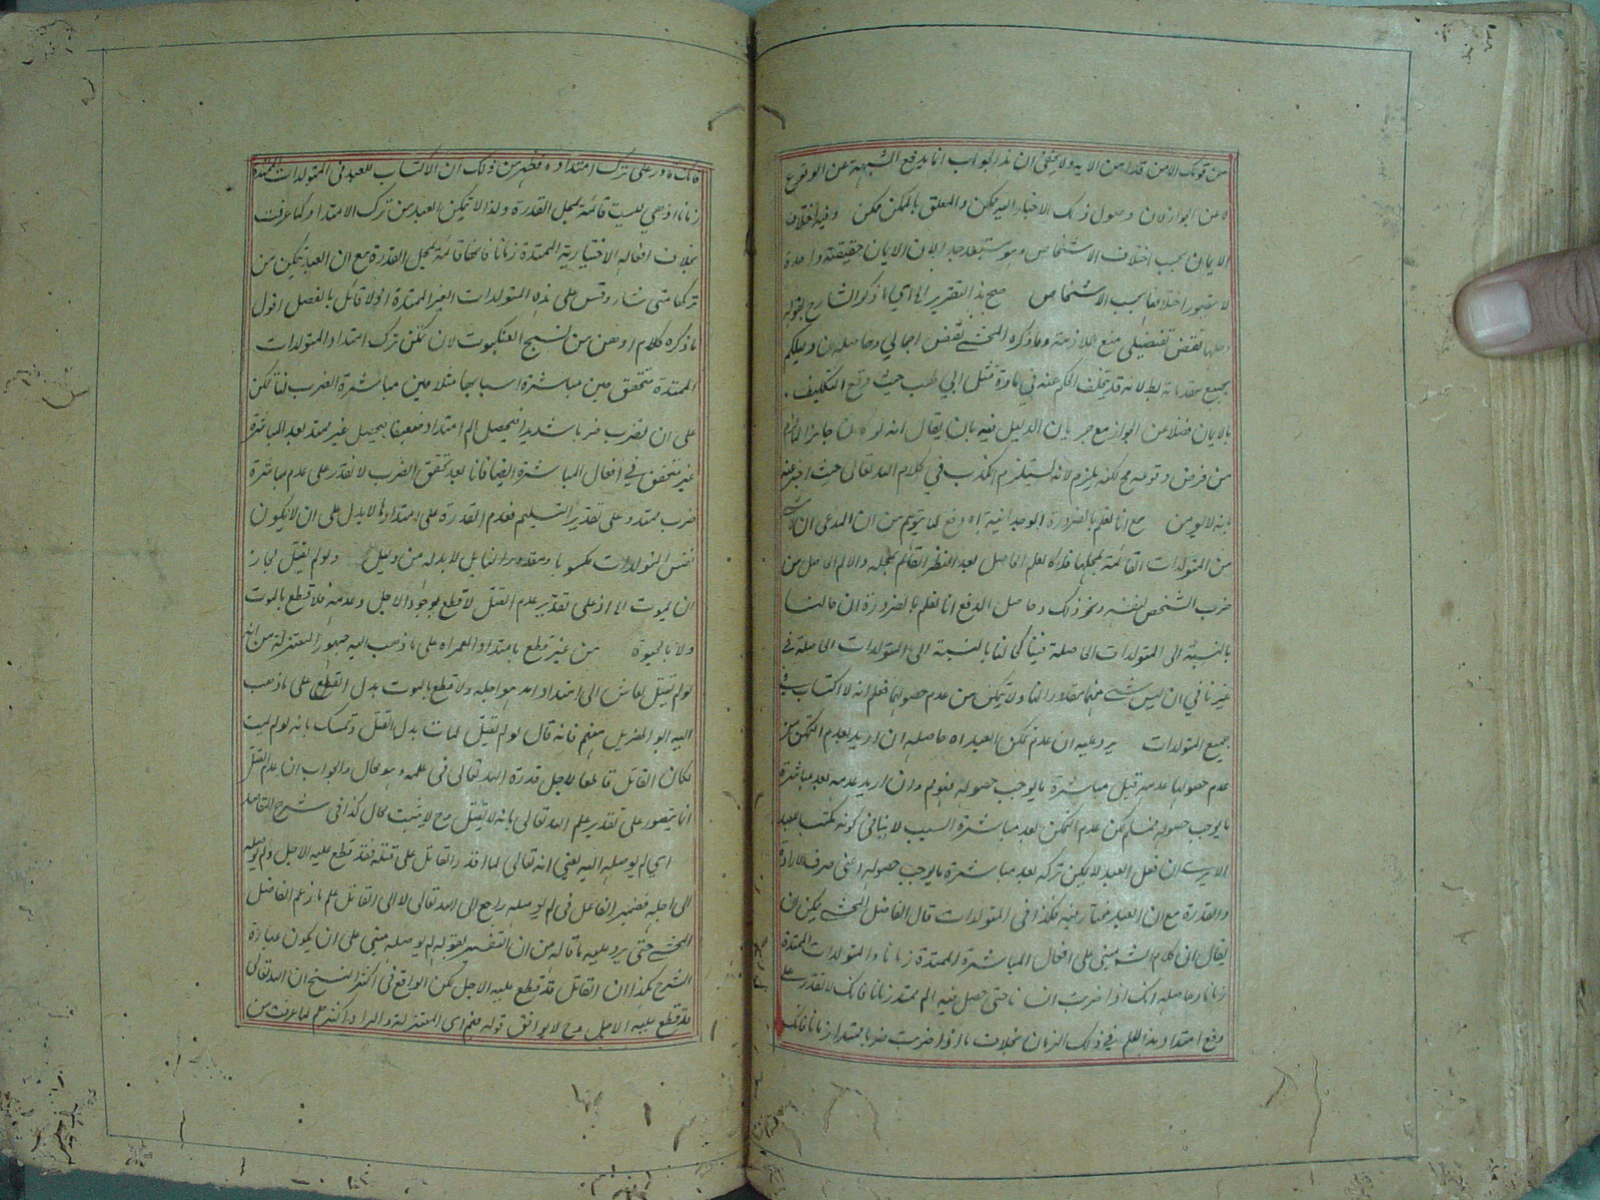 من قولك الامن قدامن الايه ولا يخفى ان هذا الجواب انما يدفع الشبهة عن الوقوع
لا عن الجواز لان وصول ذلك الاخبار اليه ممكن والمعلق بالممكن ممكن وفيه اختلاف
الايمان بحسب اختلاف الاشخاص وهو مستبعد جدا لان الايمان حقيقته واحدة
لا يتصور اختلافها بحسب الاشخاص صح هذا التقرير اه اي ما ذكر الشارح بقوله
نقض تفصيلي منع الملازمة وما ذكره المحشي نقض اجمالي وحاصله ان دليلكم
بجميع مقدماته باطل لانه قد يتخلف الحكم عنه في مادة مثل ابي طلب حيث وقع التكليف
بالايمان فضلا عن الجواز مع جريان الدليل فيه بان يقال انه لو كان جايزا لما لزم
من فرض وقوعه مح لكنه يلزم لانه يستلزم الكذب في كلام الله تعالى حيث اخبر عنه
بانه لا يؤمن مع انا نعلم بالضرورة الوجدانية اه دفع لما يتوهم من ان المدعى ان
من المتولدات القائمة بمحلها فلا كالعلم الحاصل بعد النظر القائم بمحله والالم الحاصل من
ضرب الشخص لنفسه ونحو ذلك وحاصل الدفع انا نعلم بالضرورة ان حالنا
بالنسبة الى المتولدات الحاصلة فينا كحالنا بالنسبة الى المتولدات الحاصلة في
غيرنا في ان ليس شيء منها مقدورا لنا ولا نتمكن من عدم حصولها فعلم انه لا اكتساب في
جميع المتولدات يرد عليه ان عدم تمكن العبد اه حاصله ان اريد بعدم التمكن من
عدم حصولها عدمه قبل مباشرة ما يوجب حصوله فممنوع وان اريد عدمه بعد مباشرة
ما يوجب حصوله فمسلم لكن عدم التمكن بعد مباشرة السبب لا ينافي كونه مكتسب للعبد
الا يرى ان فعل العبد لا يمكن تركه بعد مباشرة ما يوجب حصوله اعني صرف الارادة
والقدرة مع ان العبد مختار فيه فكذا في المتولدات قال الفاضل المحشي يمكن ان
يقال ان كلام الش مبني على افعال المباشرة الممتدة زمانا والمتولدات الممتدة
زمانا وحاصله انك اذا ضربت انسانا حتى حصل فيه الم يمتد زمانا فانك لا تقدر على
رفع امتداد هذا الالم في ذلك الزمان بخلاف ما اذا ضربت ضربا يمتد زمانا فانك
فانك قادر على ترك امتداده فظهر من ذلك ان لا اكتساب للعبد في المتولدات الممتدة
زمانا اذ هي ليست قائمة بمحل القدرة ولذا لا يتمكن العبد من ترك الامتداد كما عرفت
بخلاف افعاله الاختيارية الممتدة زمانا فانها قائمة بمحل القدرة مع ان العبد يتمكن من
تركها متى شاء وقس على هذه المتولدات الغير الممتدة اذ لا قائل بالفصل اقول
ما ذكره كلام اوهن من نسيج العنكبوت لان تمكن ترك امتداد المتولدات
الممتدة متحقق حين مباشرة اسبابها مثلا حين مباشرة الضرب لنا تمكن
على ان نضرب ضربا شديدا فيحصل الم امتداد وضعيفا فيحصل غير ممتد بعد المباشرة
غير متحقق في افعال المباشرة ايضا فانا بعد تحقق الضرب لا نقدر على عدم مباشرة
ضرب ممتد وعلى تقدير التسليم فعدم القدرة على امتدادها لا يدل على ان لا يكون
نفس المتولدات مكسوبا ومقدورا لنا بل لا بد له من دليل ولو لم يقتل لجاز
ان يموت اه اذ على تقدير عدم القتل لا قطع بوجود الاجل وعدمه فلا قطع بالموت
ولا بالحيوة من غير قطع بامتداد العمر اه على ما ذهب اليه جمهور المعتزلة من انه
لو لم يقتل لعاش الى امتداد امد هو اجله ولا قطع بالموت بدل القتل على ما ذهب
اليه ابو الهذيل منهم فانه قال لو لم يقتل لمات بدل القتل وتمسك بانه لو لم يمت
لكان القاتل قاطعا لاجل قدره الله تعالى في علمه وهو محال والجواب ان عدم القتل
انما يتصور على تقدير علم الله تعالى بانه لا يقتل وح لا يثبت محال كذا في شرح المقاصد
اي لم يوصله اليه يعني انه تعالى لما اقدر القاتل على قتله فقد قطع عليه الاجل ولم يوصله
الى اجله فضمير الفاعل في لم يوصله راجع الى الله تعالى لا الى القاتل علم ما زعم الفاضل
المحشي حتى يرد عليه ما قاله من ان التفسير بقوله لم يوصله مبني على ان يكون عبارة
الشرح هكذا ان القاتل قد قطع عليه الاجل لكن الواقع في اكثر النسخ ان الله تعالى
قد قطع عليه الاجل وح لا يوافق قوله منهم اي المعتزلة والمراد اكثرهم لما عرفت من